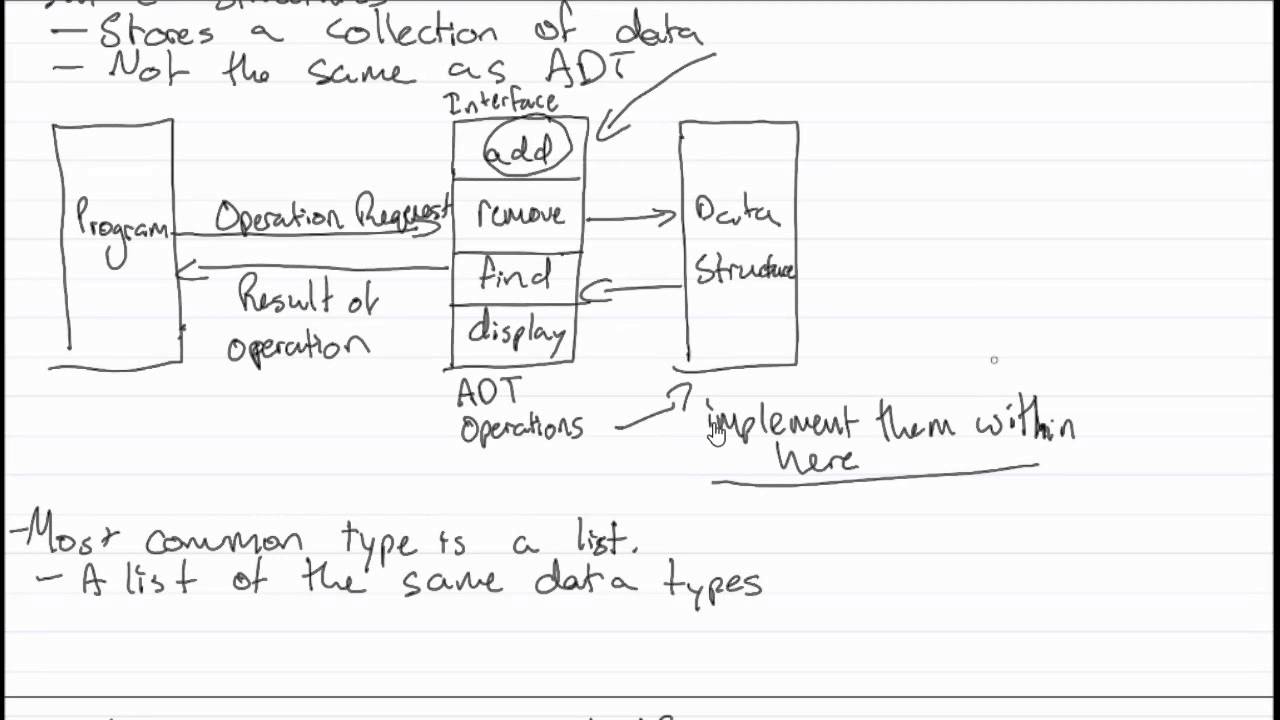 - Stores a collection of data
- Not the same as ADT
Interface
add
Program
Operation Request
remove
Data
Structure
find
Result of
operation
display
ADT
Operations
implement them within
here
- Most common type is a list.
- A list of the same data types